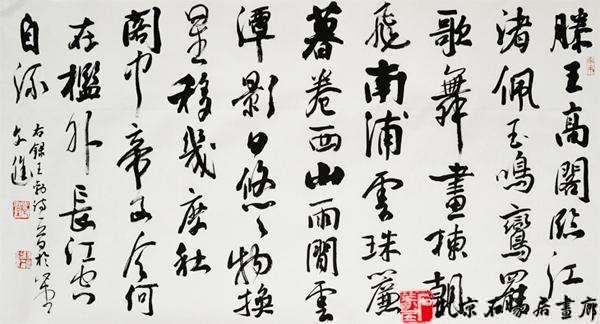 滕王高閣臨江
渚佩玉鳴鸞罷
歌舞畫棟朝
飛南浦雲珠簾
暮卷西山雨閒雲
潭影日悠々物換
星移幾度秋
閣中帝子今何
在檻外長江空
自流
右錄王勃詩一首於
文進
京石居畫廊